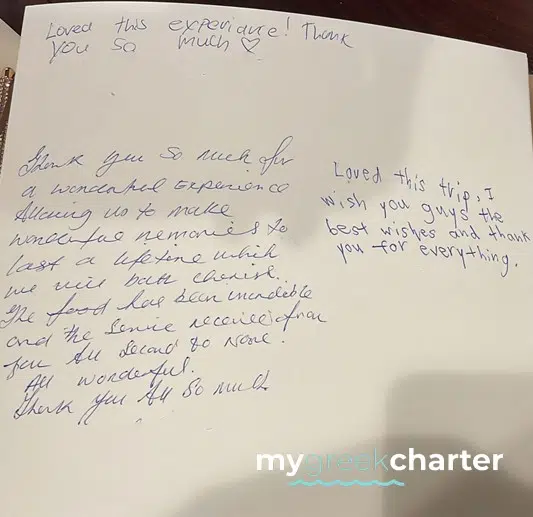 Loved this experiance! Thank
you so much ♡
Thank you so much for
a wonderful experience
Allowing us to make
wonderful memories to
last a lifetime which
we will both cherish.
The food has been incredible
and the service received from
you All second to none.
All wonderful.
Thank you All so much
Loved this trip, I
wish you guys the
best wishes and thank
you for everything.
mygreekcharter